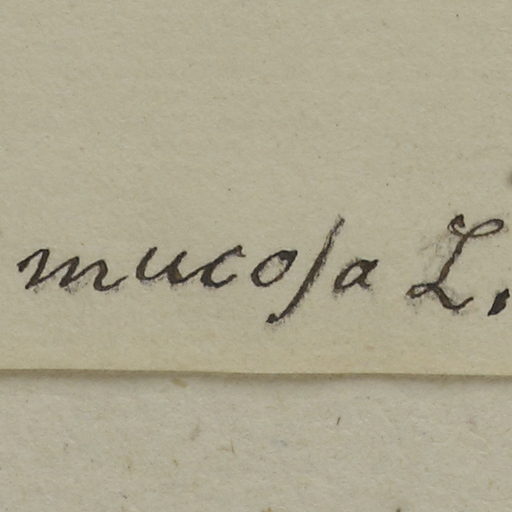 mucoſa L.